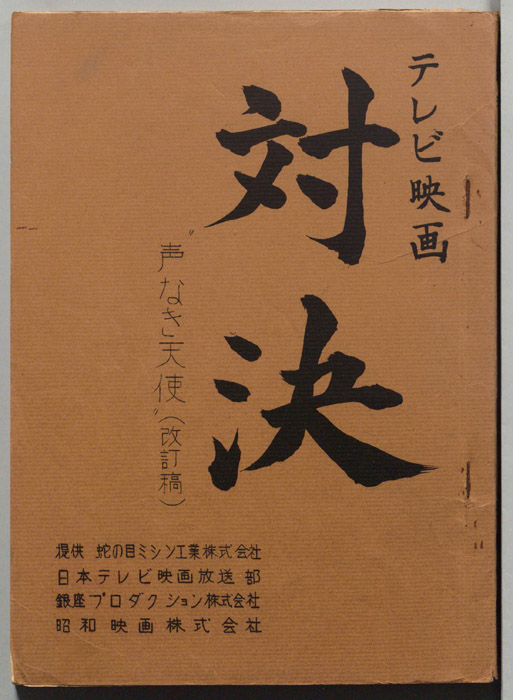 テレビ映画
対決
"声なき天使"(改訂稿)
提供 蛇の目ミシン工業株式会社
日本テレビ映画放送部
銀座プロダクション株式会社
昭和映画株式会社